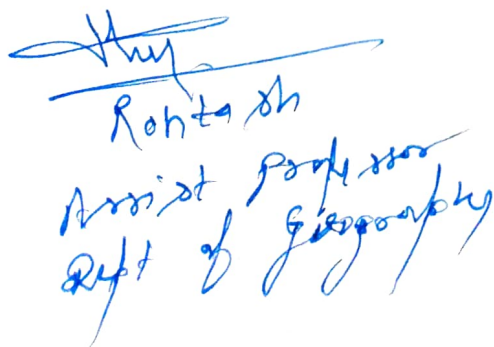 Rohtash
Assist Professor
Dept of Geography